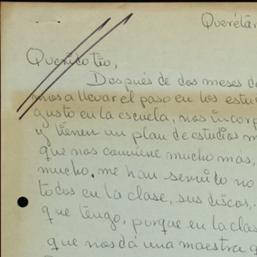 Queréta
Querido tío,
Después de dos meses d
mos a llevar el paso en los estu
gusto en la escuela, nos incorp
y tienen un plan de estudios m
que nos conviene mucho mas,
mucho, me han servido no
todos en la clase, sus discos,
que tengo, porque en la clas
que nos dá una maestra q